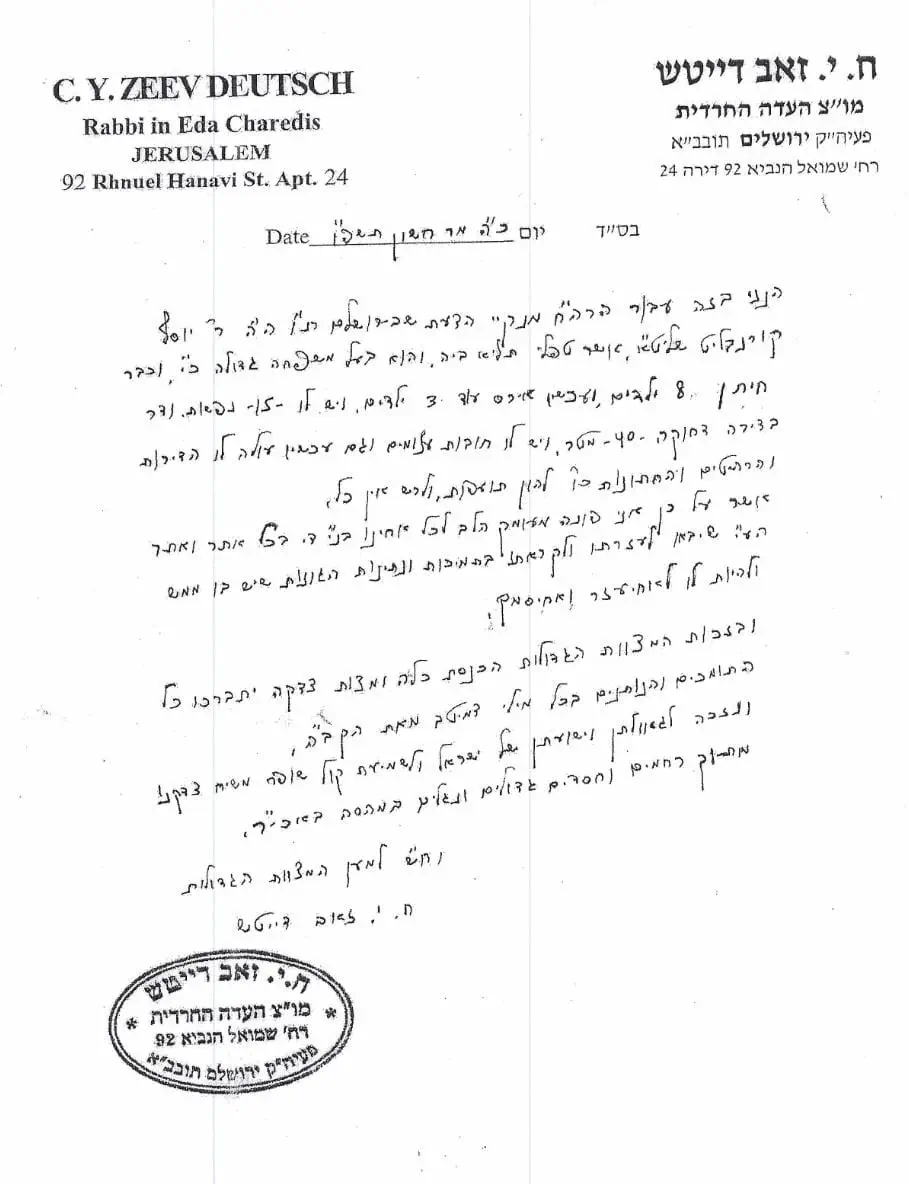 C. Y. ZEEV DEUTSCH
Rabbi in Eda Charedis
JERUSALEM
92 Rhnuel Hanavi St. Apt. 24
ח. י. זאב דייטש
מו״צ העדה החרדית
פעיה״ק ירושלים תובב״א
רח׳ שמואל הנביא 92 דירה 24
בס״ד יום כ״ה מר חשון Date
הנני בזה עבור הרה״ח מנקיי הדעת שבירושלים ה״ה ר׳ יוסף
קורנבליט שליט״א, אשר טפלי תליא ביה, והוא בעל משפחה גדולה כ״י, וכבר
חיתן 8 ילדים, ועכשיו אירס עוד 3 ילדים, ויש לו נפשות. ודר
בדירה דחוקה -40- מטר, ויש לו חובות עצומים וגם עכשיו עולה לו הדירות
והרהטים והחתונות כו׳ להון תועפות, ולרש אין כל,
אשר על כן אני פונה מעומק הלב לכל אחינו בנ״י די בכל אתר ואתר
הע״י שיבואו לעזרתו ולקראתו בתמיכות ונתינות הגונות שיש בו ממש
ולהיות לו לאחיעזר ואחיסמך,
ובזכות המצוות הגדולות הכנסת כלה ומצות צדקה יתברכו כל
התומכים והנותנים בכל מילי דמיטב מאת הקב״ה,
ונזכה לגאולתן וישועתן של ישראל ולשמיעת קול שופר משיח צדקנו
מתוך רחמים וחסדים גדולים ונגלים במהרה בא״כ״ר,
וח״ש למען המצוות הגדולות
ח. י. זאב דייטש
ח.י. זאב דייטש
* מו״צ העדה החרדית *
רח׳ שמואל הנביא 92
פעיה״ק ירושלם תובב״א